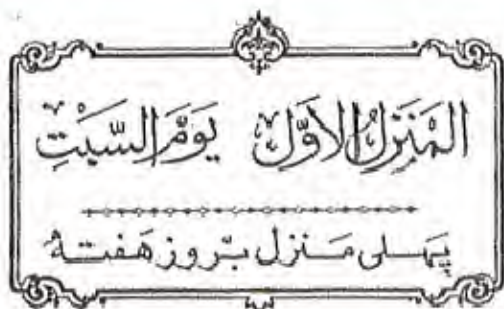 المَنزِلُ الاَوَّل يَوْمَ السَّبْتِ
پہلی منزل بروز ہفتہ